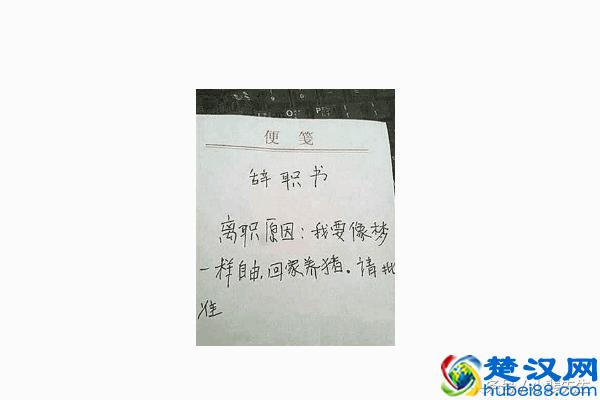 便笺
辞职书
离职原因：我要像梦
一样自由，回家养猪。请批
准
楚汉网
hubei88.com